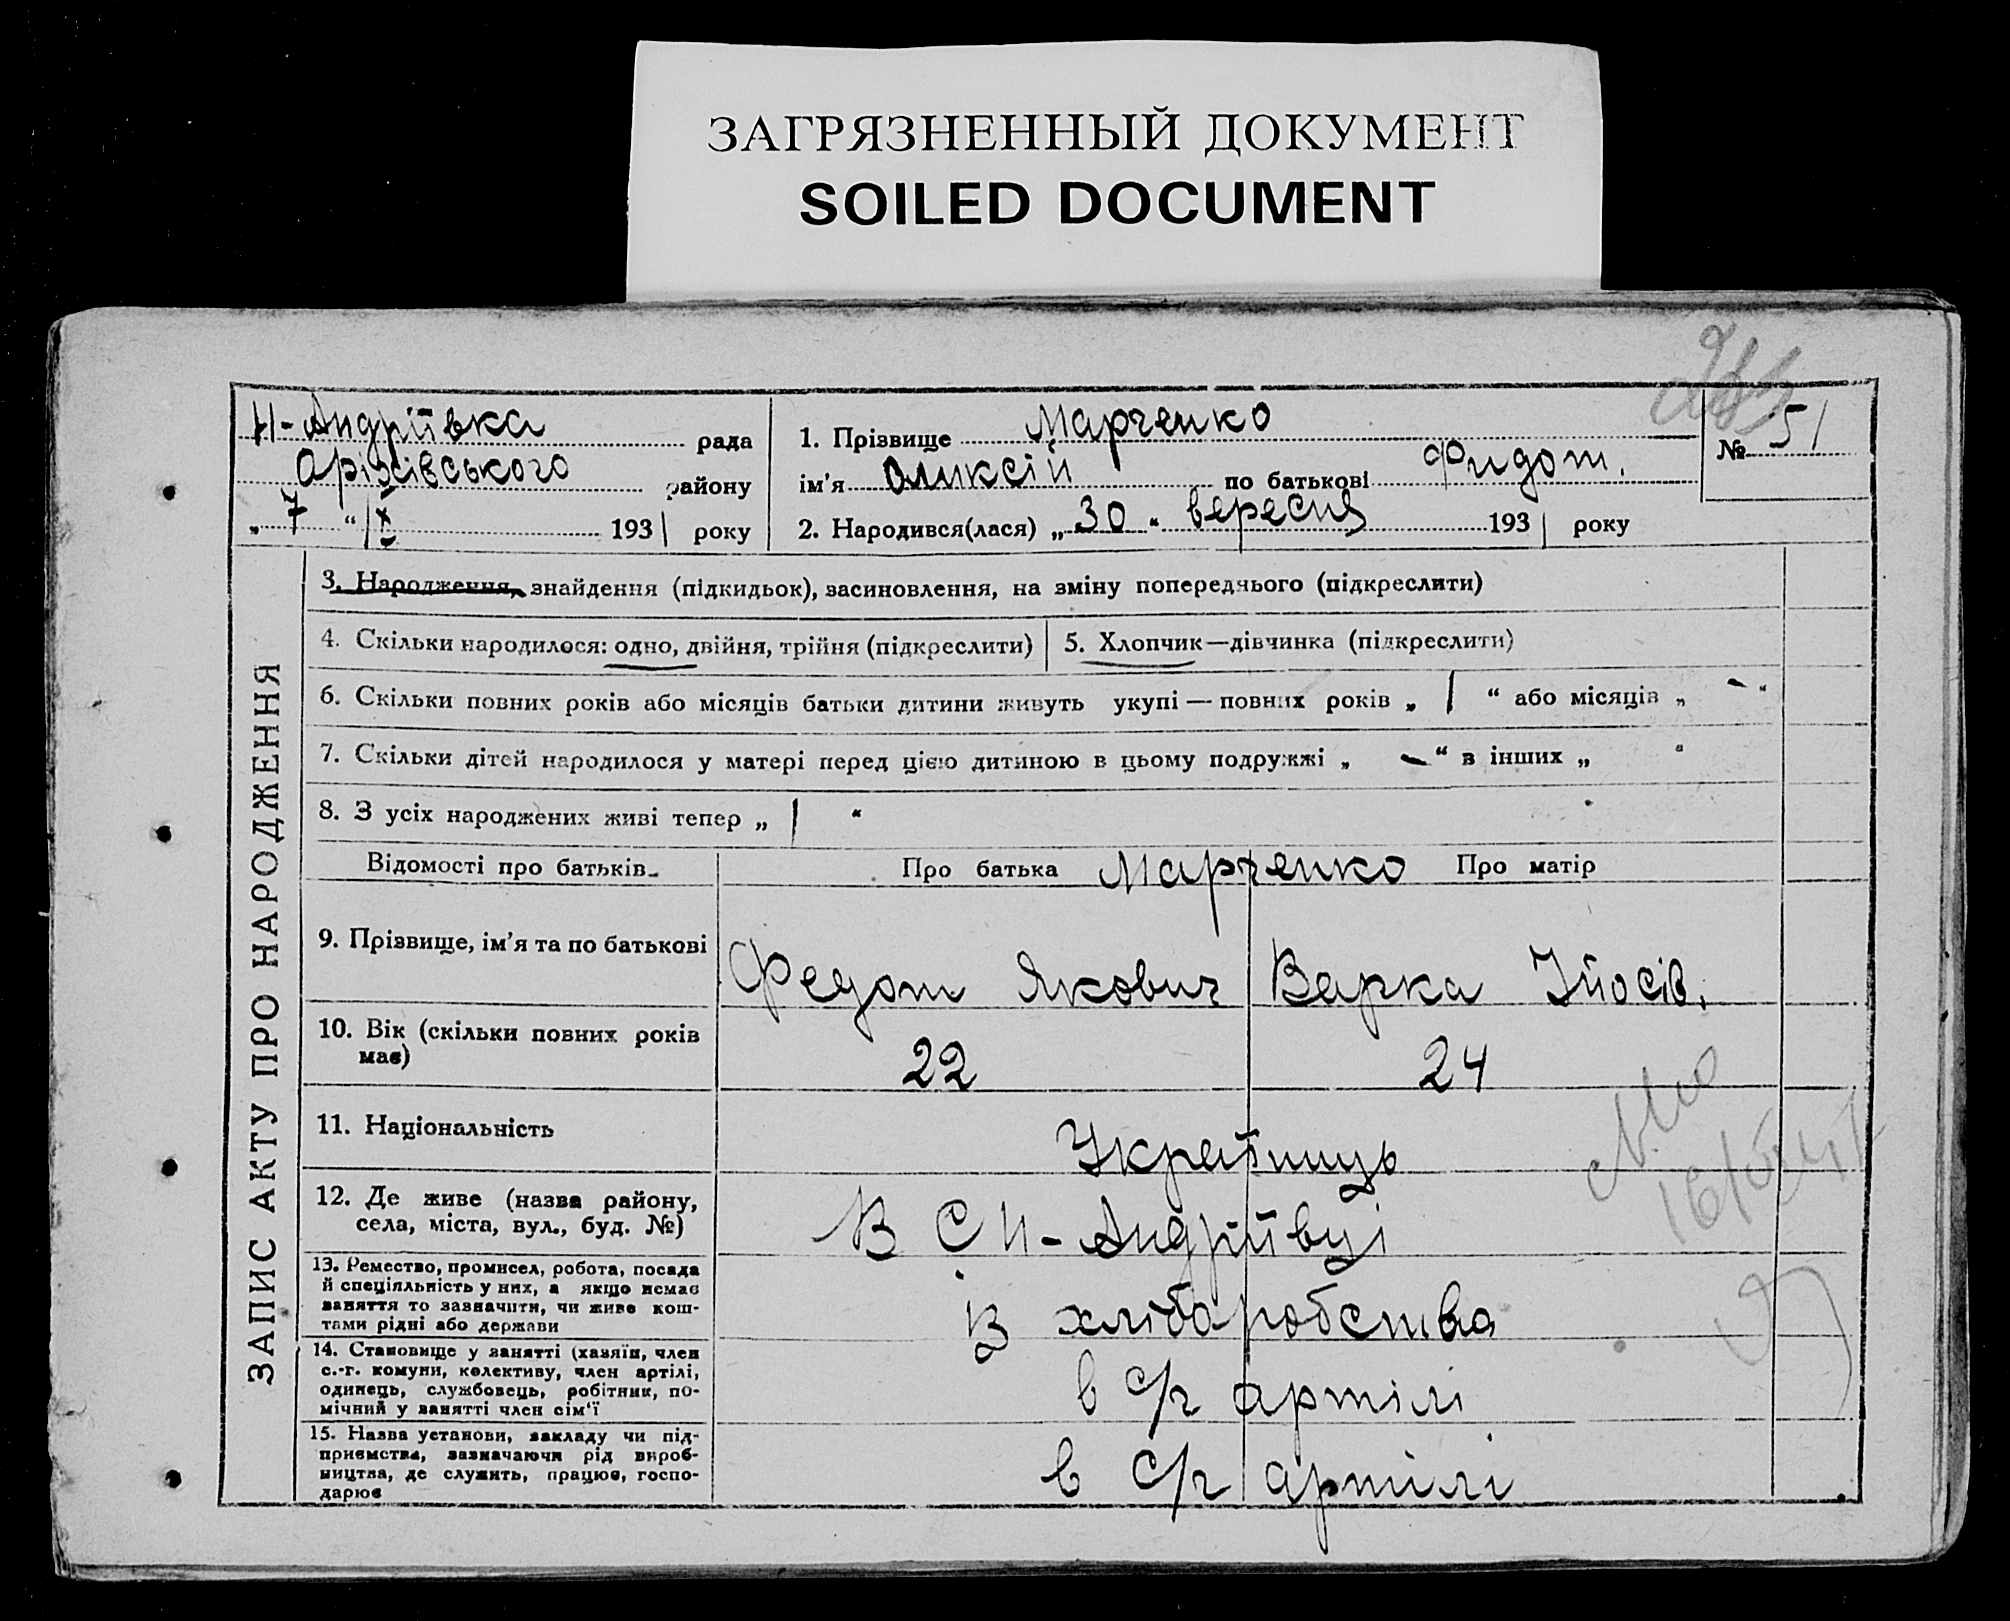 ЗАГРЯЗНЕННЫЙ ДОКУМЕНТ
SOILED DOCUMENT
Н-Андріївка рада
Оріхівського району
„ 7 “ X 1931 року
1. Прізвище Марченко
ім’я Оликсій по батькові Фидот.
2. Народився(лася) „ 30 “ вересня 1931 року
№ 51
ЗАПИС АКТУ ПРО НАРОДЖЕННЯ
3. Народження, знайдення (підкидьок), засиновлення, на зміну попереднього (підкреслити)
4. Скільки народилося: одно, двійня, трійня (підкреслити) 5. Хлопчик—дівчинка (підкреслити)
6. Скільки повних років або місяців батьки дитини живуть укупі — повних років „ 1 “ або місяців „ - “
7. Скільки дітей народилося у матері перед цією дитиною в цьому подружжі „ - “ в інших „ “
8. З усіх народжених живі тепер „ 1 “
Відомості про батьків Про батька Марченко Про матір
9. Прізвище, ім’я та по батькові Федот Якович Варка Ійосів.
10. Вік (скільки повних років
має) 22 24
11. Національність Україниць
12. Де живе (назва району,
села, міста, вул., буд. №) В С Н-Андріївці
13. Ремество, промисел, робота, посада
й спеціяльність у них, а якщо немає
заняття то зазначити, чи живе кош-
тами рідні або держави В хліборобства
14. Становище у занятті (хазяїн, член
с.-г. комуни, колективу, член артілі,
одинець, службовець, робітник, по-
мічний у занятті член сім’ї в с/г артілі
15. Назва установи, закладу чи під-
приємства, зазначаючи рід вироб-
ництва, де служить, працює, госпо-
дарює в с/г артілі